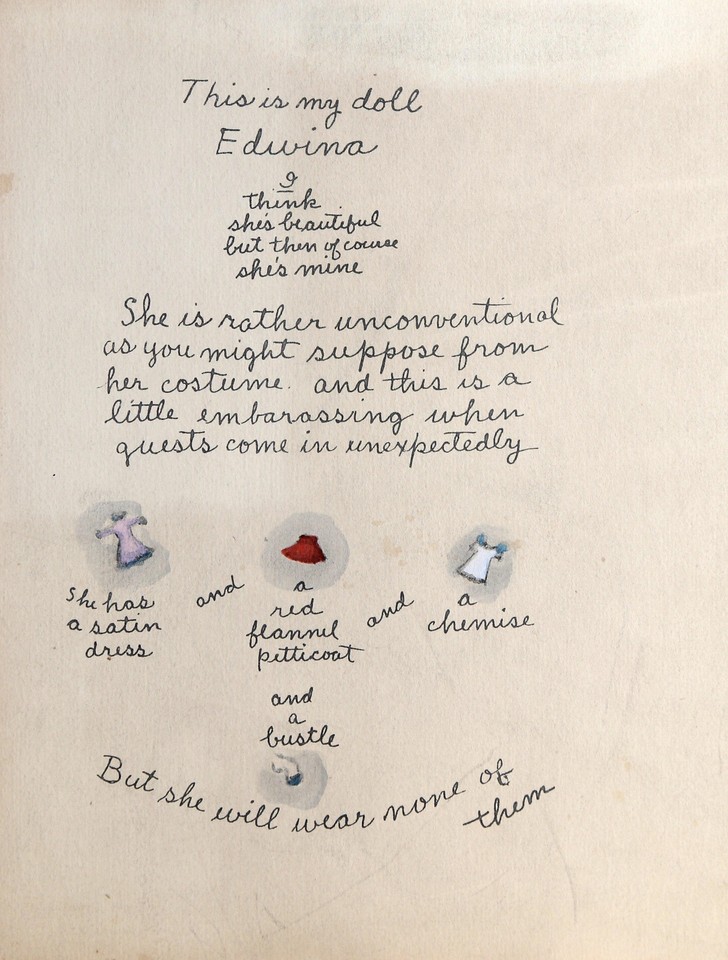 This is my doll
Edwina
I
think
she's beautiful
but then of course
she's mine
She is rather unconventional
as you might suppose from
her costume. and this is a
little embarassing when
guests come in unexpectedly
she has
a satin
dress
and
a
red
flannel
petticoat
and
a
chemise
and
a
bustle
But she will wear none of
them